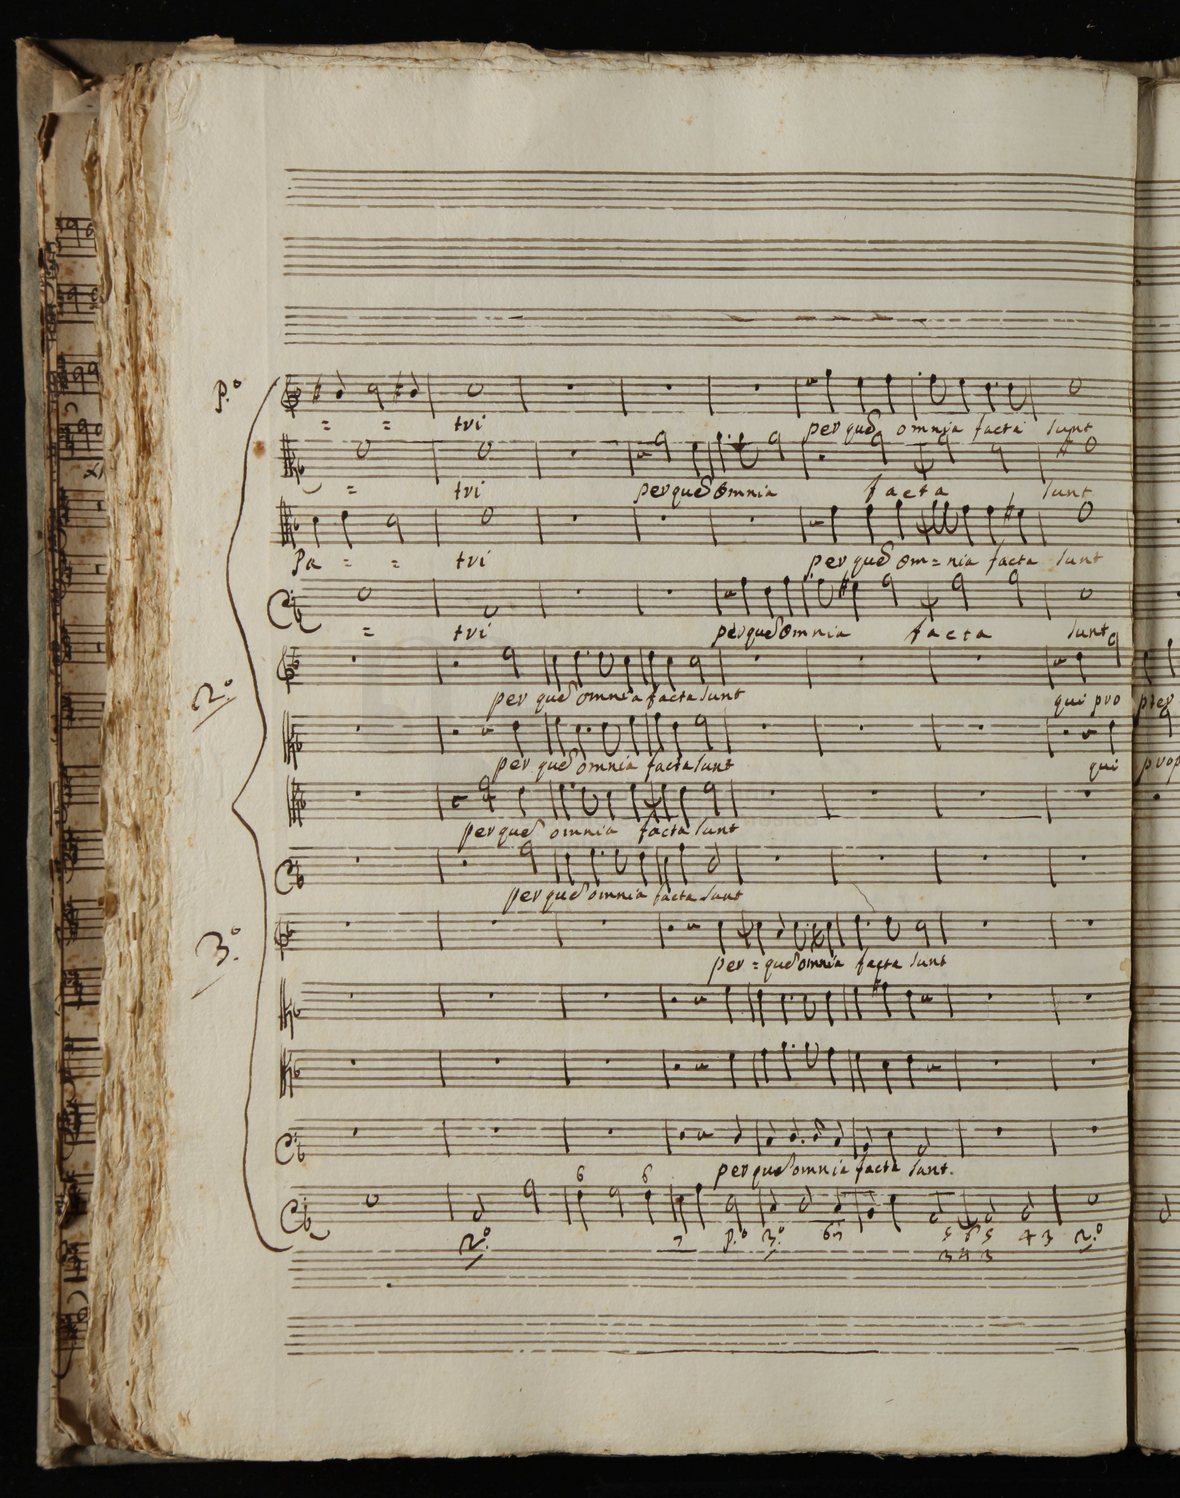 p.º
= = tri
per quē omnia facta sunt
= tri perquē omnia facta sunt
Pa = = tri per quē om=nia facta sunt
= tri perquē omnia facta sunt
2.º
per quē omnia facta sunt qui pro pter
per quē omnia facta sunt qui prop
perquē omnia facta sunt
per quē omnia facta sunt
3.º
per = quē omnia facta sunt
perquē omnia facta sunt.
6 6
2.º 7 p.º 3.º 65 5 6 5 4 3 2.º
3 4 3